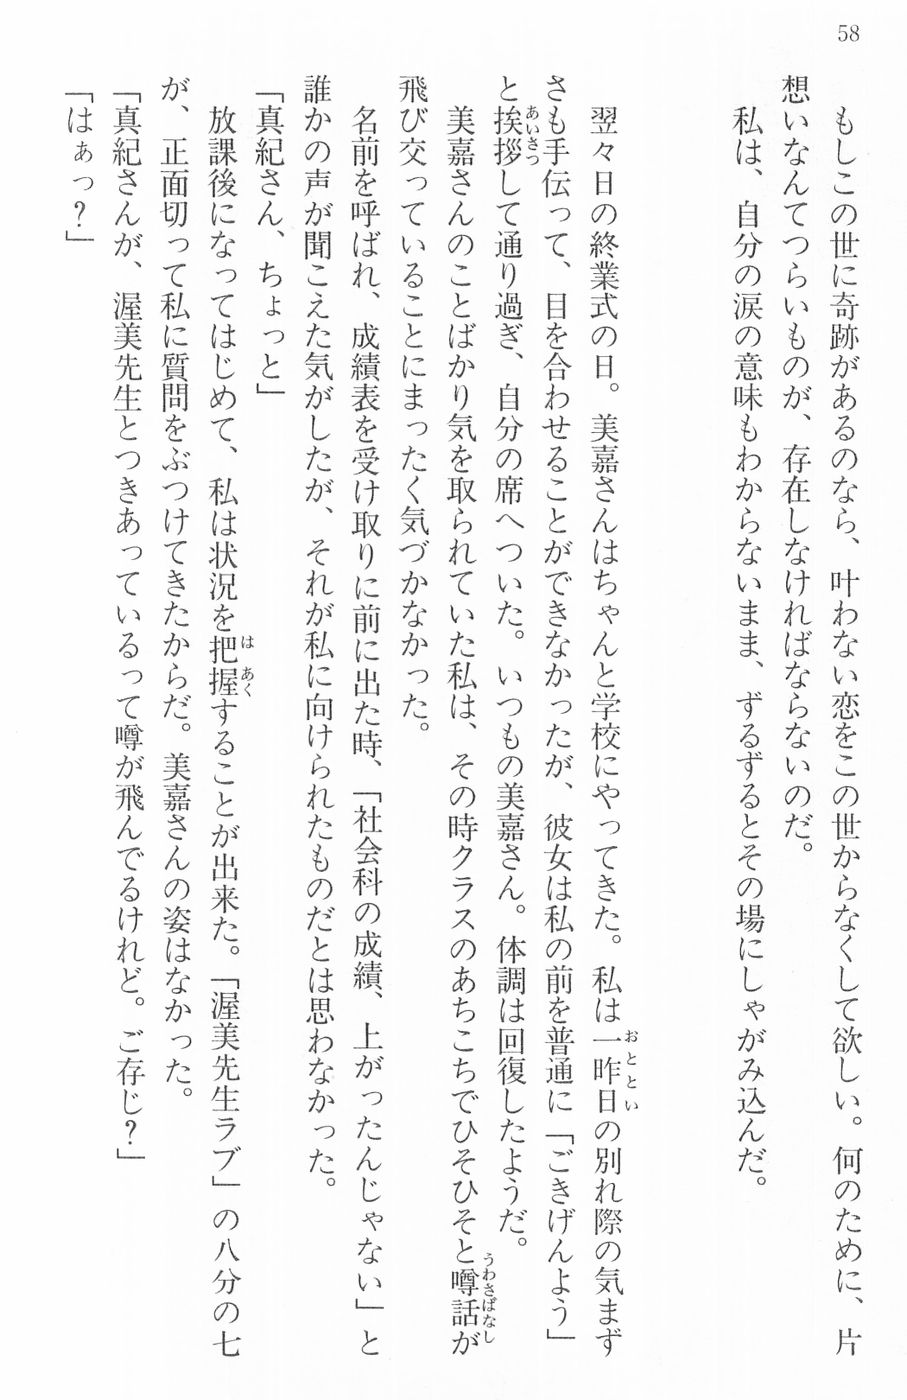 58
もしこの世に奇跡があるのなら、叶わない恋をこの世からなくして欲しい。何のために、片
想いなんてつらいものが、存在しなければならないのだ。
私は、自分の涙の意味もわからないまま、ずるずるとその場にしゃがみ込んだ。
翌々日の終業式の日。美嘉さんはちゃんと学校にやってきた。私は一昨日の別れ際の気まず
さも手伝って、目を合わせることができなかったが、彼女は私の前を普通に「ごきげんよう」
と挨拶して通り過ぎ、自分の席へついた。いつもの美嘉さん。体調は回復したようだ。
美嘉さんのことばかり気を取られていた私は、その時クラスのあちこちでひそひそと噂話が
飛び交っていることにまったく気づかなかった。
名前を呼ばれ、成績表を受け取りに前に出た時、「社会科の成績、上がったんじゃない」と
誰かの声が聞こえた気がしたが、それが私に向けられたものだとは思わなかった。
「真紀さん、ちょっと」
放課後になってはじめて、私は状況を把握することが出来た。「渥美先生ラブ」の八分の七
が、正面切って私に質問をぶつけてきたからだ。美嘉さんの姿はなかった。
「真紀さんが、渥美先生とつきあっているって噂が飛んでるけれど。ご存じ？」
「はぁっ？」